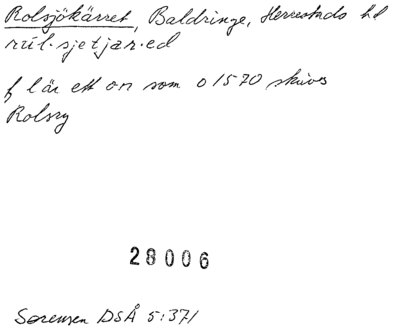 Rolsjökärret, Baldringe, Herrestads hd
rúl·sjetjar·ed
f lär ett on som o 1570 skrives
Rolsry
28006
Sørensen DSÅ 5:371